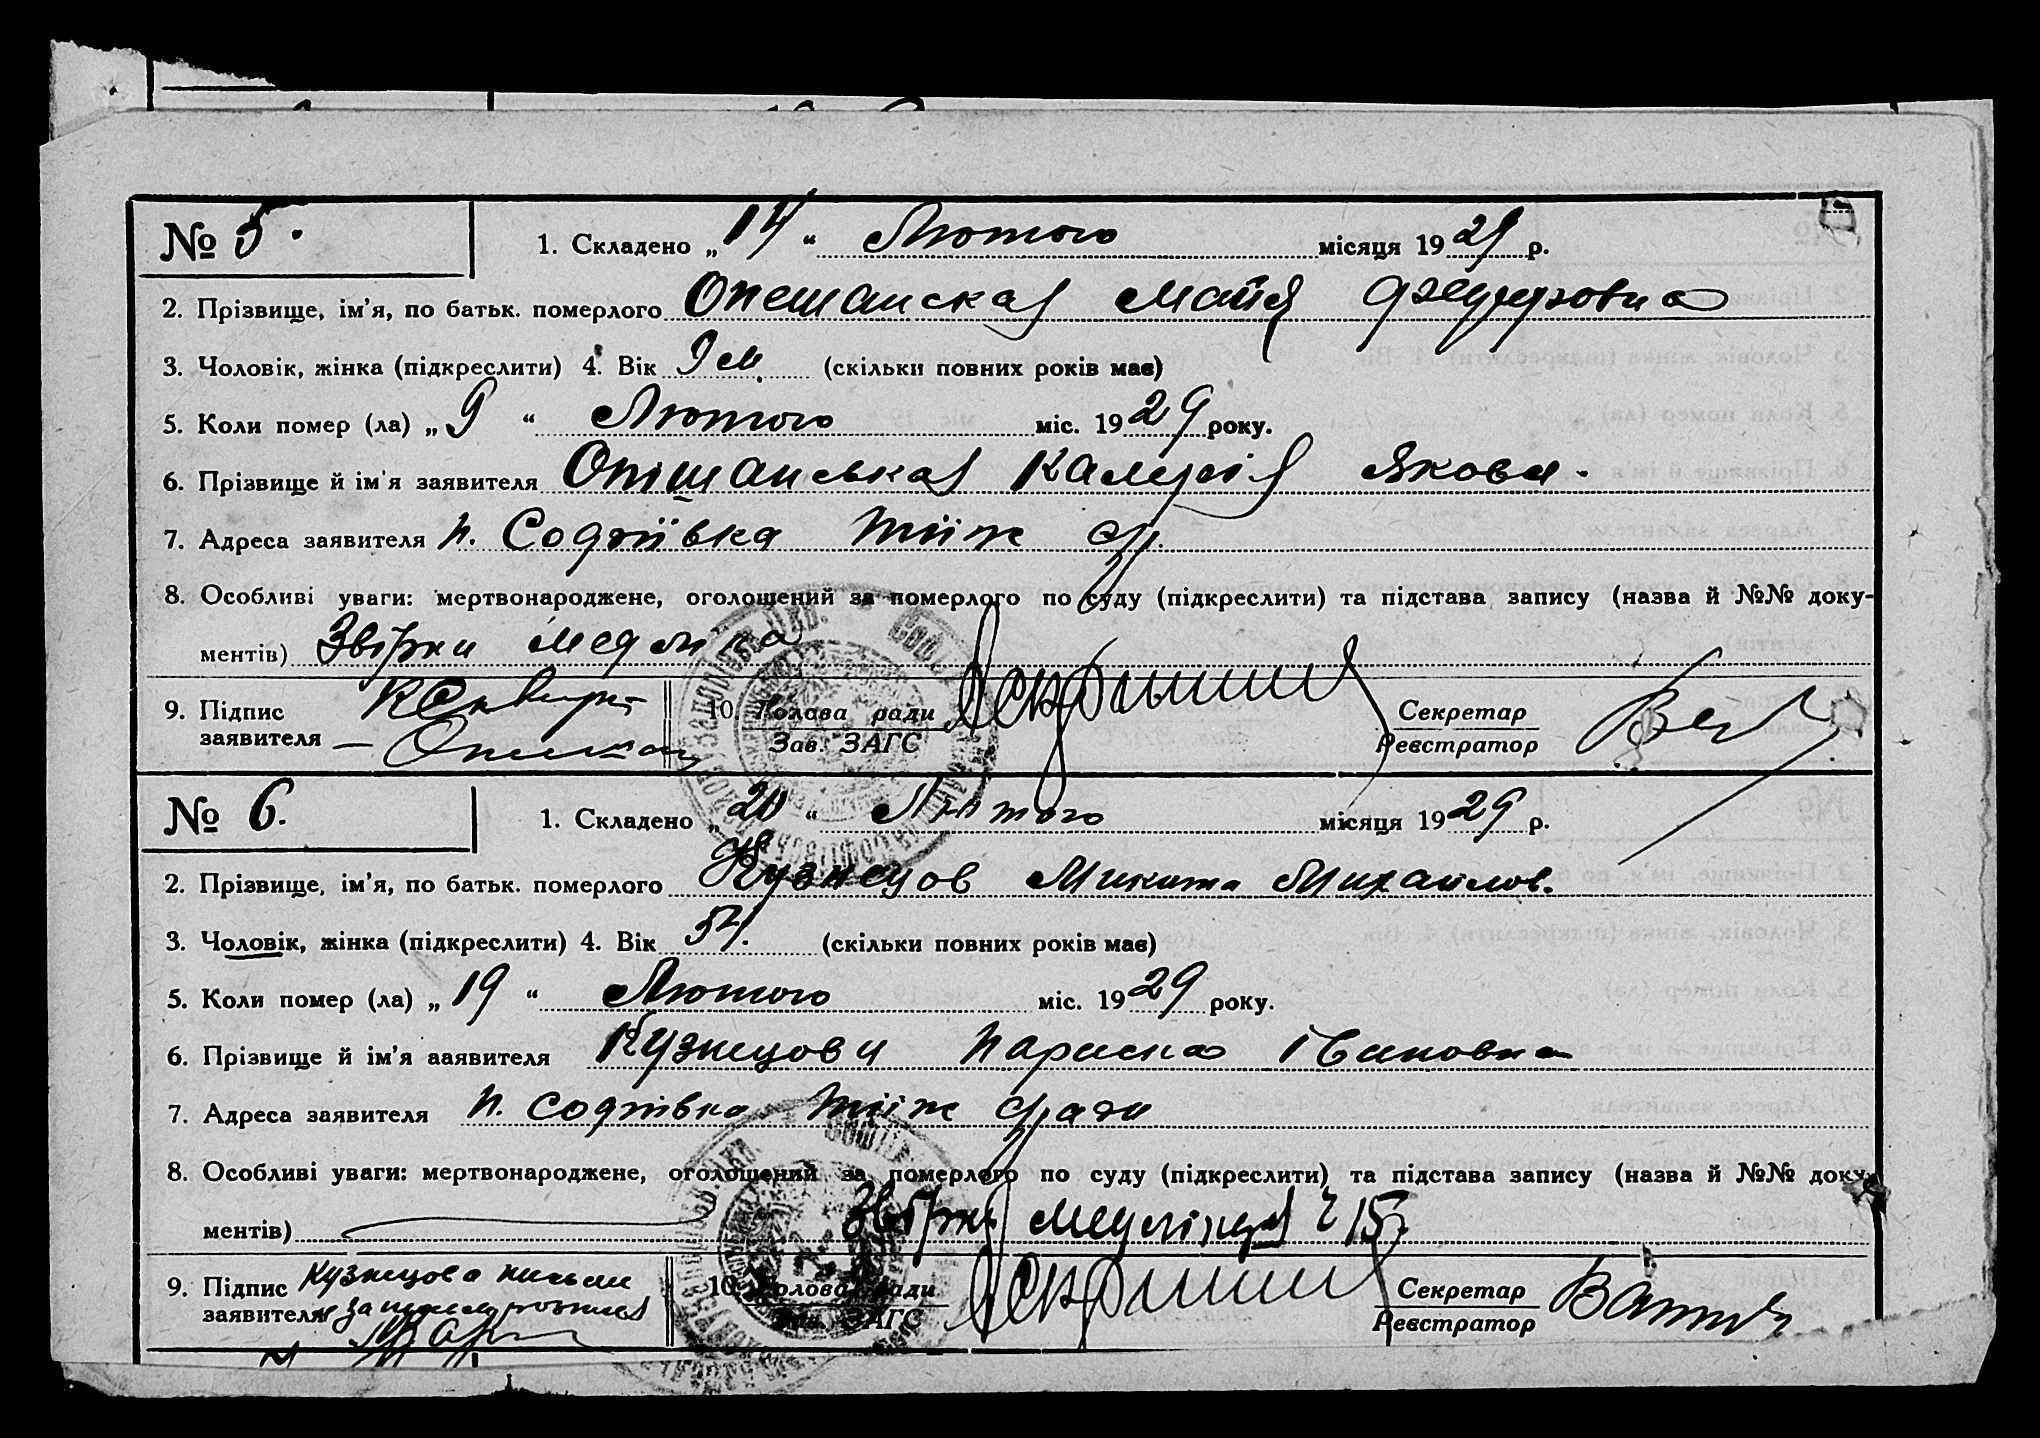 № 5.
1. Складено „ 14 “ Лютого місяця 1929 р.
2. Прізвище, ім'я, по батьк. померлого Опешанская Майя
3. Чоловік, жінка (підкреслити) 4. Вік 9 м. (скільки повних років має)
5. Коли помер (ла) „ 9 “ Лютого міс. 1929 року.
6. Прізвище й ім'я заявителя Опішанська Калерія Яковл.
7. Адреса заявителя п. Софіївка тіїж
8. Особливі уваги: мертвонароджене, оголошений за померлого по суду (підкреслити) та підстава запису (назва й №№ доку-
ментів)
9. Підпис
заявителя
10. Голова ради
Зав. ЗАГС
Секретар
Реєстратор
№ 6.
1. Складено „ 20 “ Лютого місяця 1929 р.
2. Прізвище, ім'я, по батьк. померлого Кузнецов Микита Михайлов.
3. Чоловік, жінка (підкреслити) 4. Вік 54. (скільки повних років має)
5. Коли помер (ла) „ 19 “ Лютого міс. 1929 року.
6. Прізвище й ім'я заявителя Кузнецова Параска Івановна
7. Адреса заявителя п. Софіївка тіїж с/ради
8. Особливі уваги: мертвонароджене, оголошений за померлого по суду (підкреслити) та підстава запису (назва й №№ доку-
ментів)
9. Підпис Кузнецова
заявителя
10. Голова ради
Зав. ЗАГС
Секретар
Реєстратор